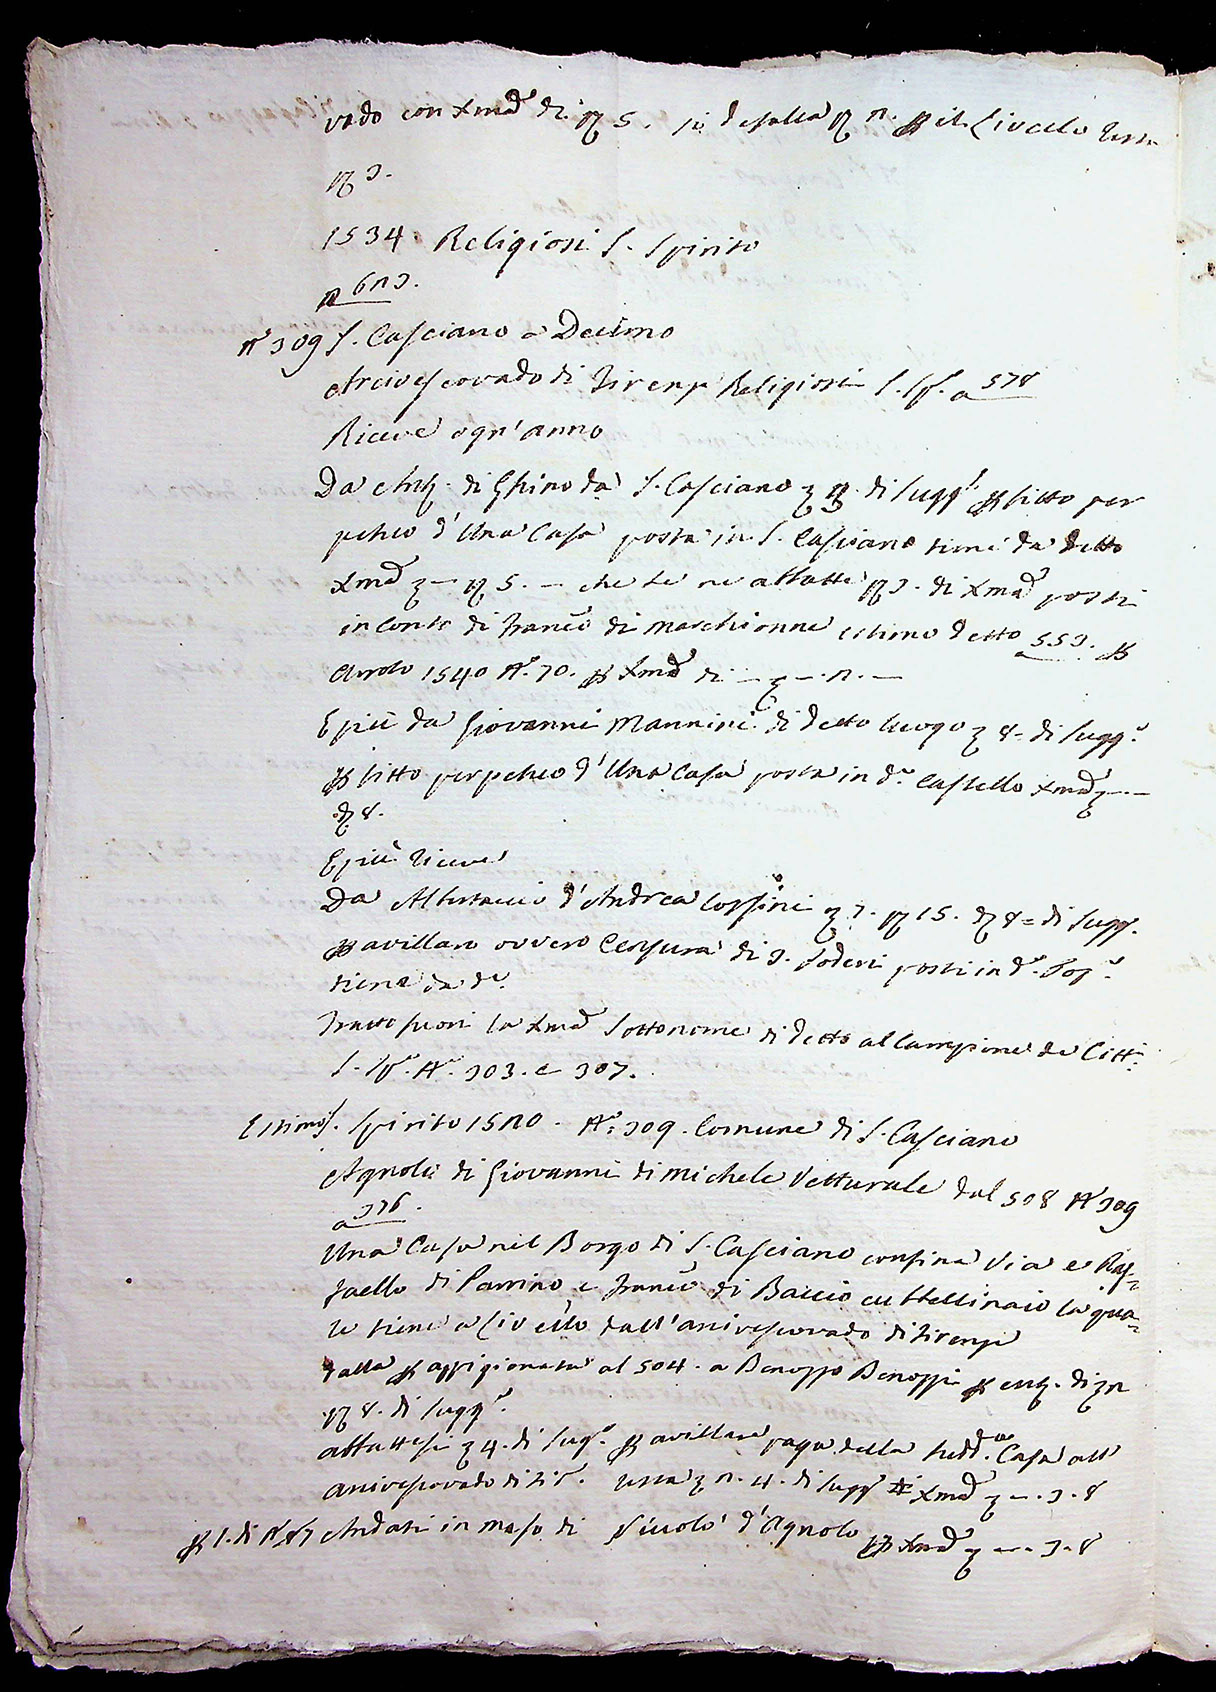 vado con Xma di β 5. si defalca β n. p il Livello resta
β 3.
1534 Religiosi S. Spirito
a 6n3.
n° 309 S. Casciano a Decimo
Arcivescovado di Firenze Religiosi S. Sp. a 578
Riceve ogn'anno
Da Ant. di Ghino da S. Casciano di sugg. p fitto per
petuo d'Una Casa posta in S. Casciano tiene da detto
Xma — β 5. — che se ne abbatte β 3. di Xma posti
in conto di Franco di Marchionne estimo detto 553. p
Arroto 1540 N° 70. p Xma di — — . n. —
E più da Giovanni Mannini di detto luogo 8 = di sugg.
p fitto perpetuo d'Una Casa posta in d° Castello Xma — . —
8.
E più riceve
Da Albertaccio d'Andrea Corsini 7. β 15. 8 = di sugg.
p avillaro ovvero Censura di 3. Poderi posti in d° Pop°
tiene da d°
Tratto fuori la Xma sotto nome di detto al Campione de Citt.
S. Sp° N° 303. e 307.
Estimo S. Spirito 15n0. N° 309. Comune di S. Casciano
Agnolo di Giovanni di Michele Vetturale dal 508 N° 309
a 376.
Una Casa nel Borgo di S. Casciano confina Via e Raf=
faello di Parrino e Franco di Baccio cu ttellinaio la qua=
le tiene a Livello dall'Arcivescovado di Firenze
Dalla p appigionata al 504. a Benozzo Benozzi p di n
β 8. di sugg.
abbattesi 4. di sug. p avillare paga della sudd.a Casa all'
Arcivescovado di Fir. resta n. 4. di sugg Xma — . 3. 8
p S. di N° 87 Andati in Maso di Piccolo d'Agnolo p Xma — . 3. 8